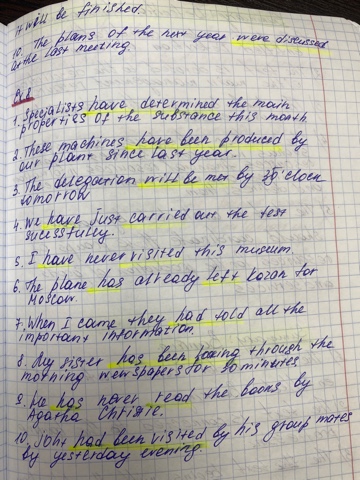 it will be finished.
10. The plans of the next year were discussed
at the last meeting.
1. Specialists have determined the main
properties of the substance this month
2. These machines have been produced by
our plant since last year.
3. The delegation will be met by o'clock
tomorrow
4. We have just carried out the test
sucessfully.
5. I have never visited this museum.
6. The plane has already left Kazan for
Moscow.
7. When I came they had told all the
important information.
8. My sister has been looking through the
morning newspapers for 30 minutes
9. He has never read the books by
Agatha Christie.
10. John had been visited by his group mates
by yesterday evening.